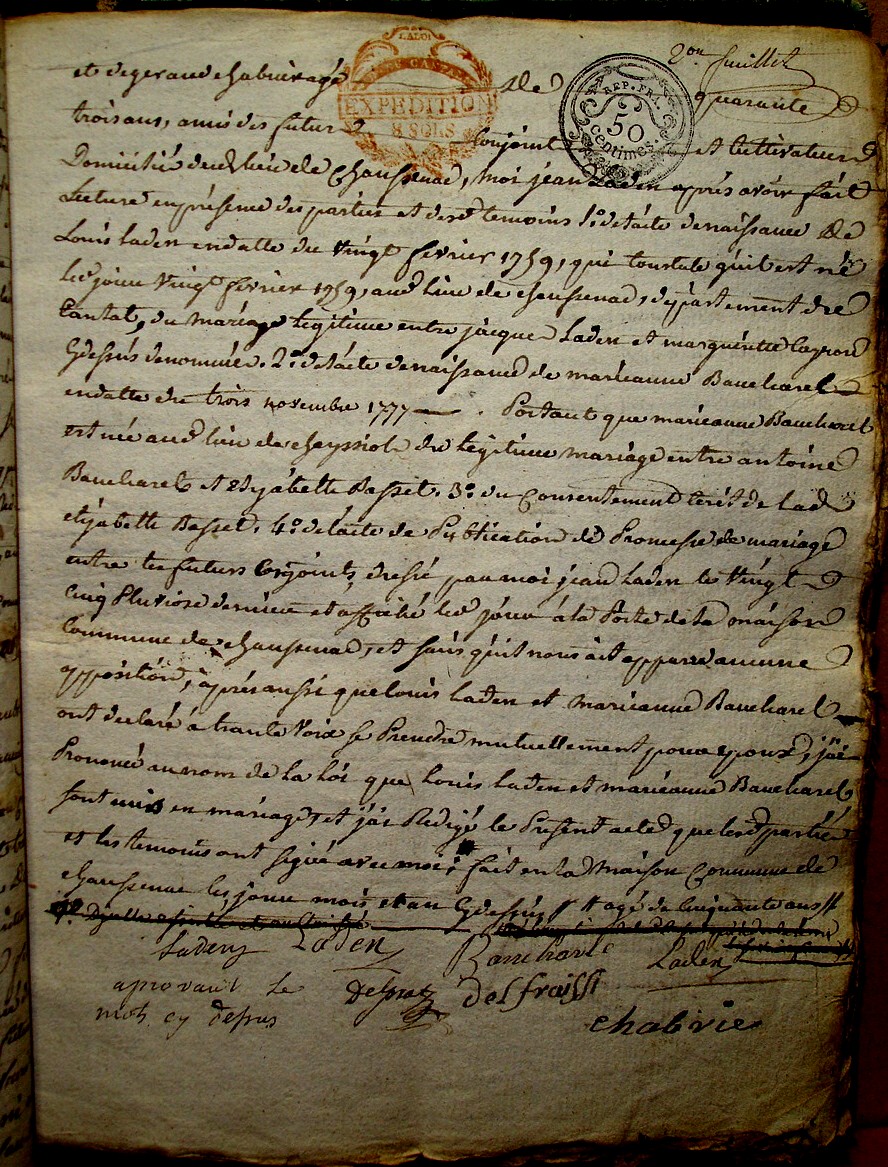 2on feuillet
LA LOI
EXPEDITION
8 SOLS
REP. FRA.
50
centimes.
et de geraud chabrie agé de quarante
trois ans, amis des futurs Conjoints et Cultivateurs
Domiciliés dud. lieu de Chaussenac, moi jean Laden après avoir fait
Lecture en présence des parties et desd. temoins 1º de l'acte de naissance de
Louis Laden en datte du vingt fevrier 1759, qui constate qu'il est né
led. jour vingt fevrier 1759, aud. lieu de chaussenac, département du
Cantal, du mariage legitime entre jacque Laden et marguerite
Cydessus denommée. 2º de l'acte de naissance de marieanne Baucharel
en datte du trois novembre 1777. Portant que marieanne Baucharel
est née aud. lieu de du legitime mariage entre antoine
Baucharel et Basset. 3º du Consentement de lad.
Basset. 4º de l'acte de Publication de Promesse de mariage
entre les futurs Conjoints, dressé par moi jean Laden le vingt
Cinq Pluviose dernier et affiché led. jour à la Porte de la maison
Commune de chaussenac, et sans qu'il nous ait apparu aucune
opposition, après aussi que louis Laden et marieanne Baucharel
ont declaré à haute voix se Prendre mutuellement pour epoux, j'ai
Prononcé au nom de la loi que Louis Laden et marieanne Baucharel
sont unis en mariage, et j'ai Redigé le Present acte que lesd. parties
et les temoins ont signé avec moi; fait en la maison Commune de
chaussenac les jour mois et an Cydessus # agé de Cinquante ans #
Laden Laden Baucharel Laden
aprovant le Delsol delfraissi
mots cy desus chabrie